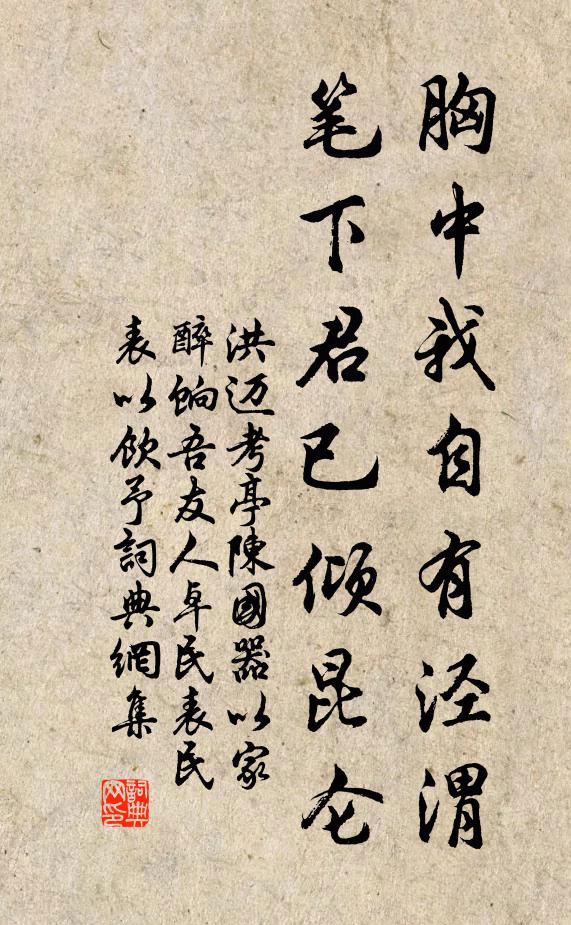 胸中我自有泾渭
笔下君已倾昆仑
洪迈考亭陳國器以家
醉餉吾友人卓民表民
表以飲予詞典網集
詞典
网印